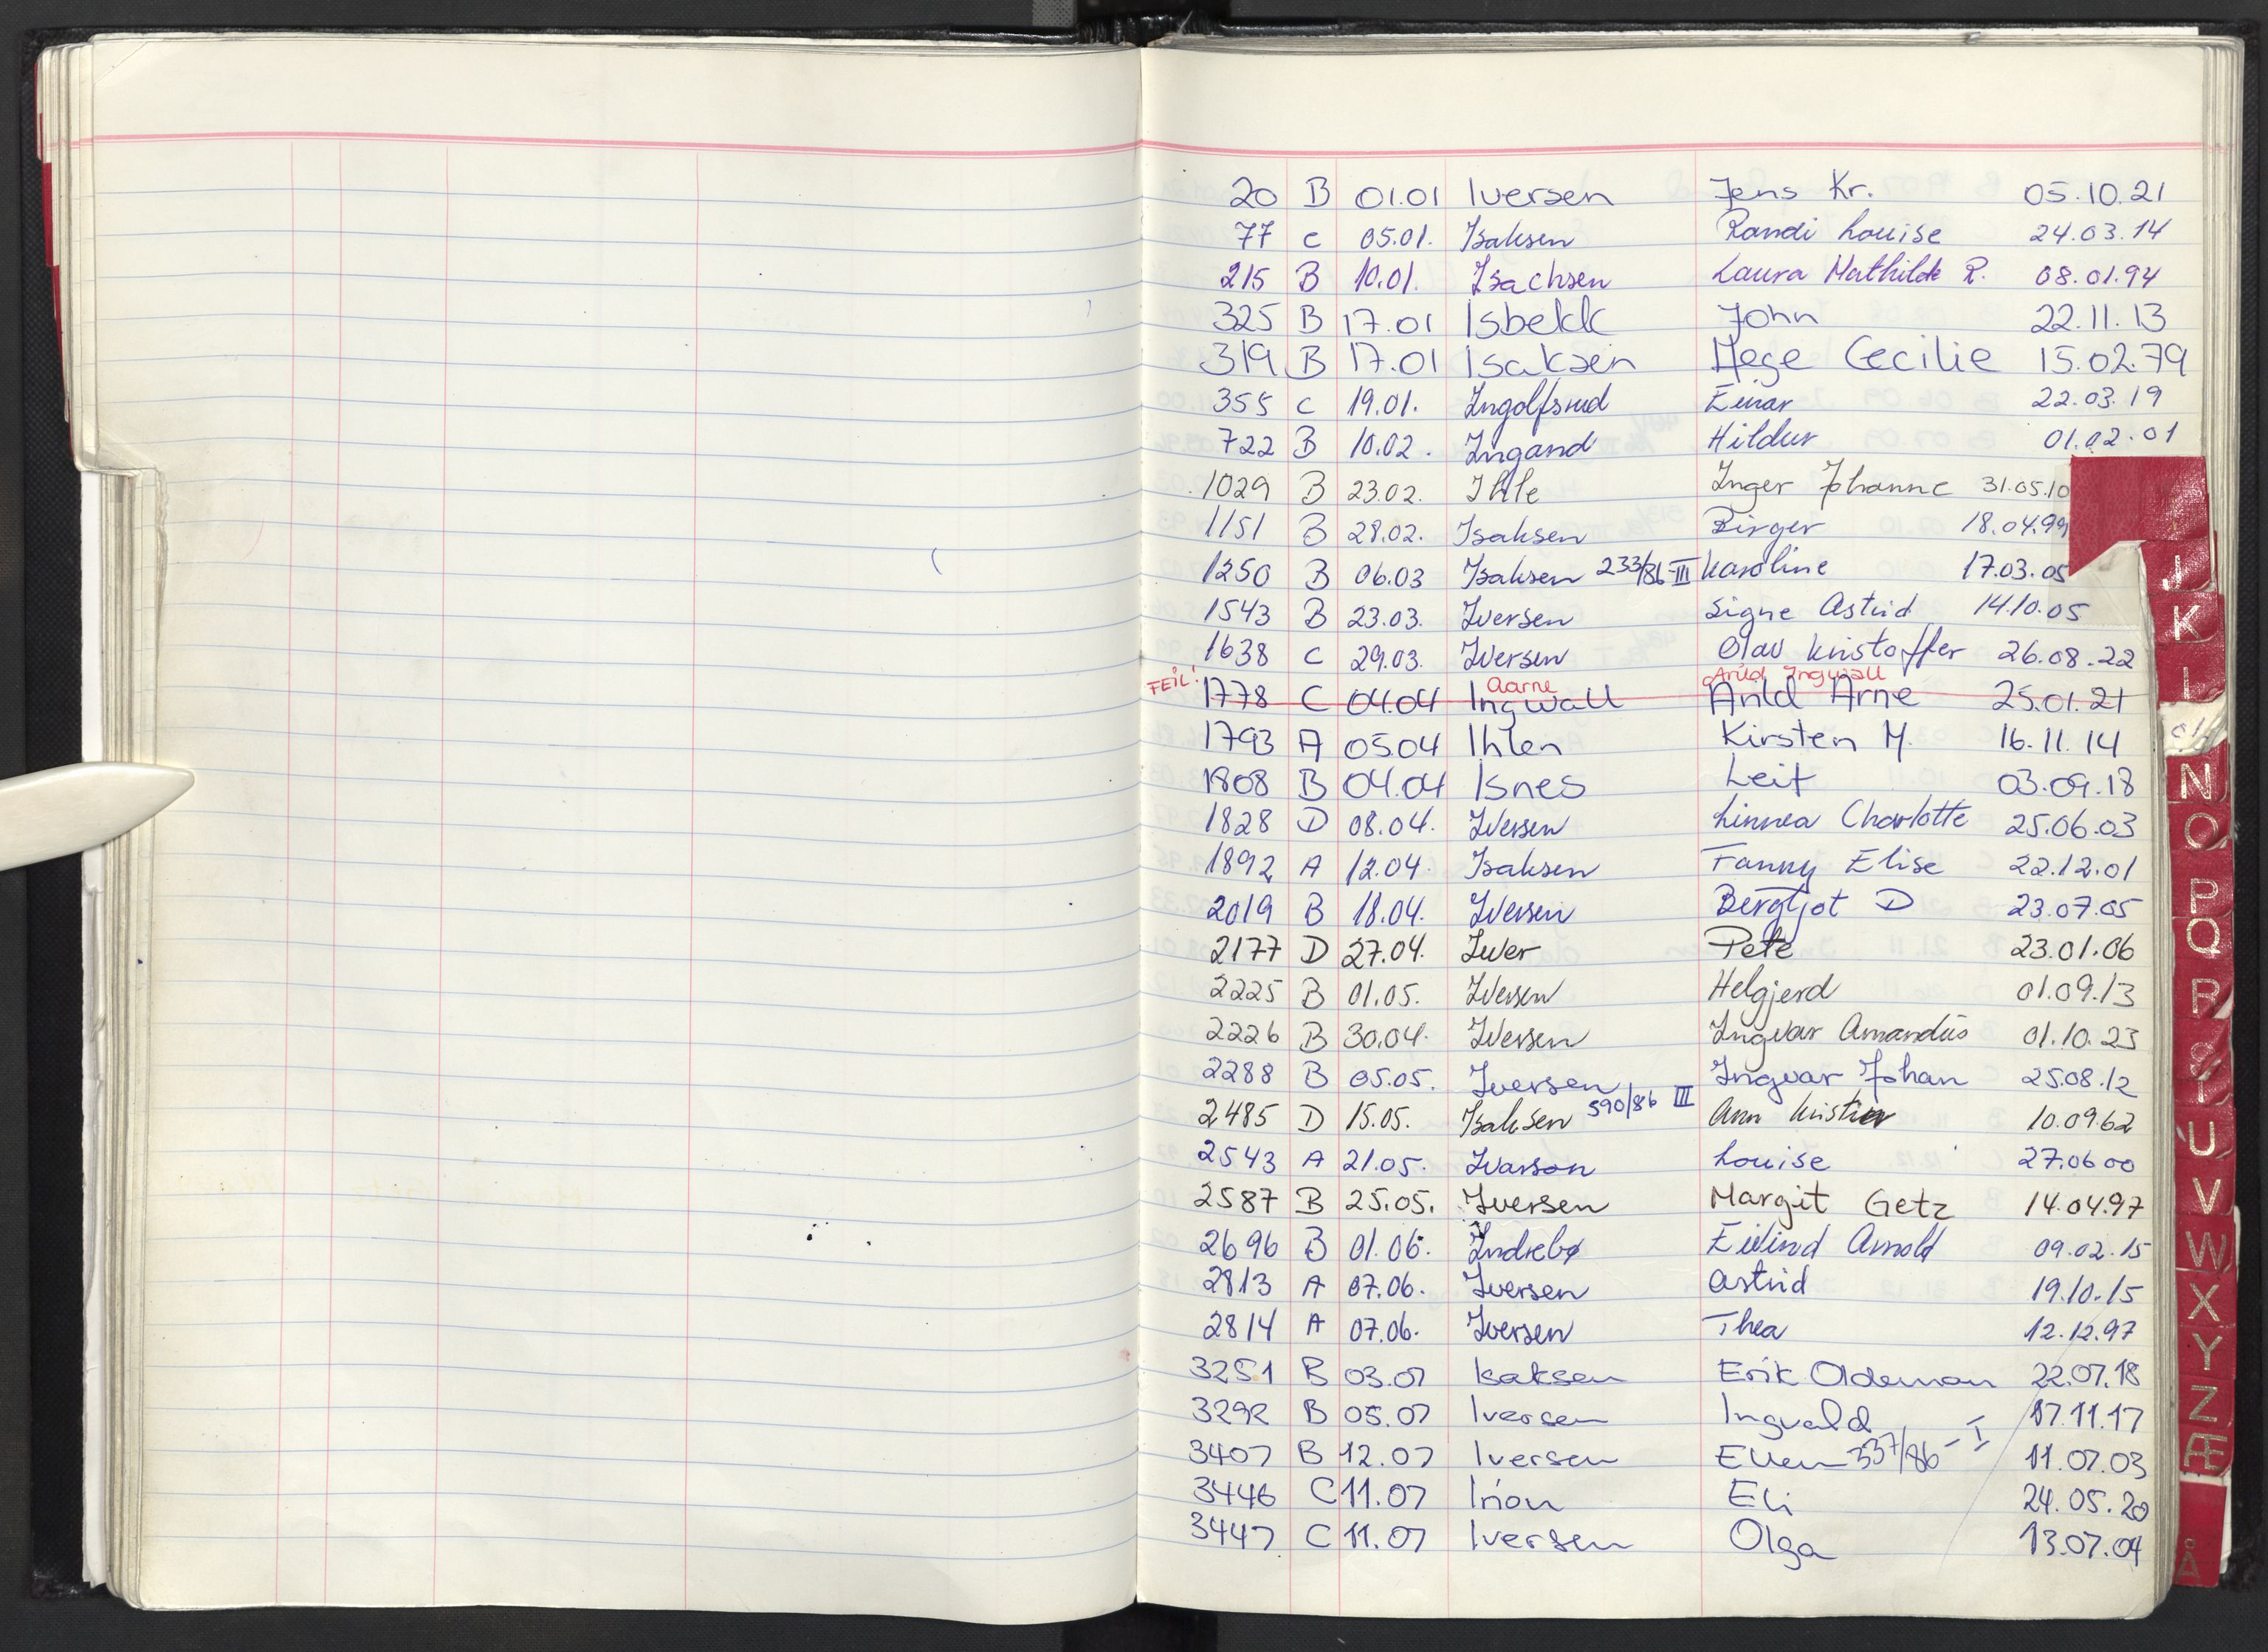 20 B 01.01 Iversen Jens Kr. 05.10.21
77 C 05.01. Isaksen Randi Louise 24.03.14
215 B 10.01. Isachsen Laura Mathilde R. 08.01.94
325 B 17.01 Isbekk John 22.11.13
319 B 17.01 Isaksen Hege Cecilie 15.02.79
355 C 19.01. Ingolfsrud Einar 22.03.19
722 B 10.02. Ingand Hildur 01.02.01
1029 B 23.02. Ihle Inger Johanne 31.05.10
1151 B 28.02. Isaksen Birger 18.04.99
1250 B 06.03 Isaksen 233/86-III Karoline 17.03.05
1543 B 23.03. Iversen Signe Astrid 14.10.05
1638 C 29.03. Iversen Olav Kristoffer 26.08.22
FEIL! Aarne Arild Ingwall
1778 C 04.04 Ingwall Arild Arne 25.01.21
1793 A 05.04 Ihlen Kirsten M. 16.11.14
1808 B 04.04 Isnes Leif 03.09.18
1828 D 08.04. Iversen Linnea Charlotte 25.06.03
1892 A 12.04. Isaksen Fanny Elise 22.12.01
2019 B 18.04. Iversen Bergljot D 23.07.05
2177 D 27.04. Iver Pete 23.01.06
2225 B 01.05. Iversen Helgjerd 01.09.13
2226 B 30.04. Iversen Ingvar Amandus 01.10.23
2288 B 05.05. Iversen Ingvar Johan 25.08.12
2485 D 15.05. Isaksen 590/86 III Ann Kristin 10.09.62
2543 A 21.05. Ivarson Louise 27.06.00
2587 B 25.05. Iversen Margit Getz 14.04.97
2696 B 01.06. Indrebø Eivind Arnold 09.02.15
2813 A 07.06. Iversen Astrid 19.10.15
2814 A 07.06. Iversen Thea 12.12.97
3251 B 03.07 Isaksen Erik Oldeman 22.07.18
3292 B 05.07 Iversen Ingvald 17.11.17
3407 B 12.07 Iversen Ellen 337/86-I 11.07.03
3446 C 11.07 Irion Eli 24.05.20
3447 C 11.07 Iversen Olga 13.07.04
J
K
L
N
O
P
Q
R
S
T
U
V
W
X
Y
Z
Æ
Å